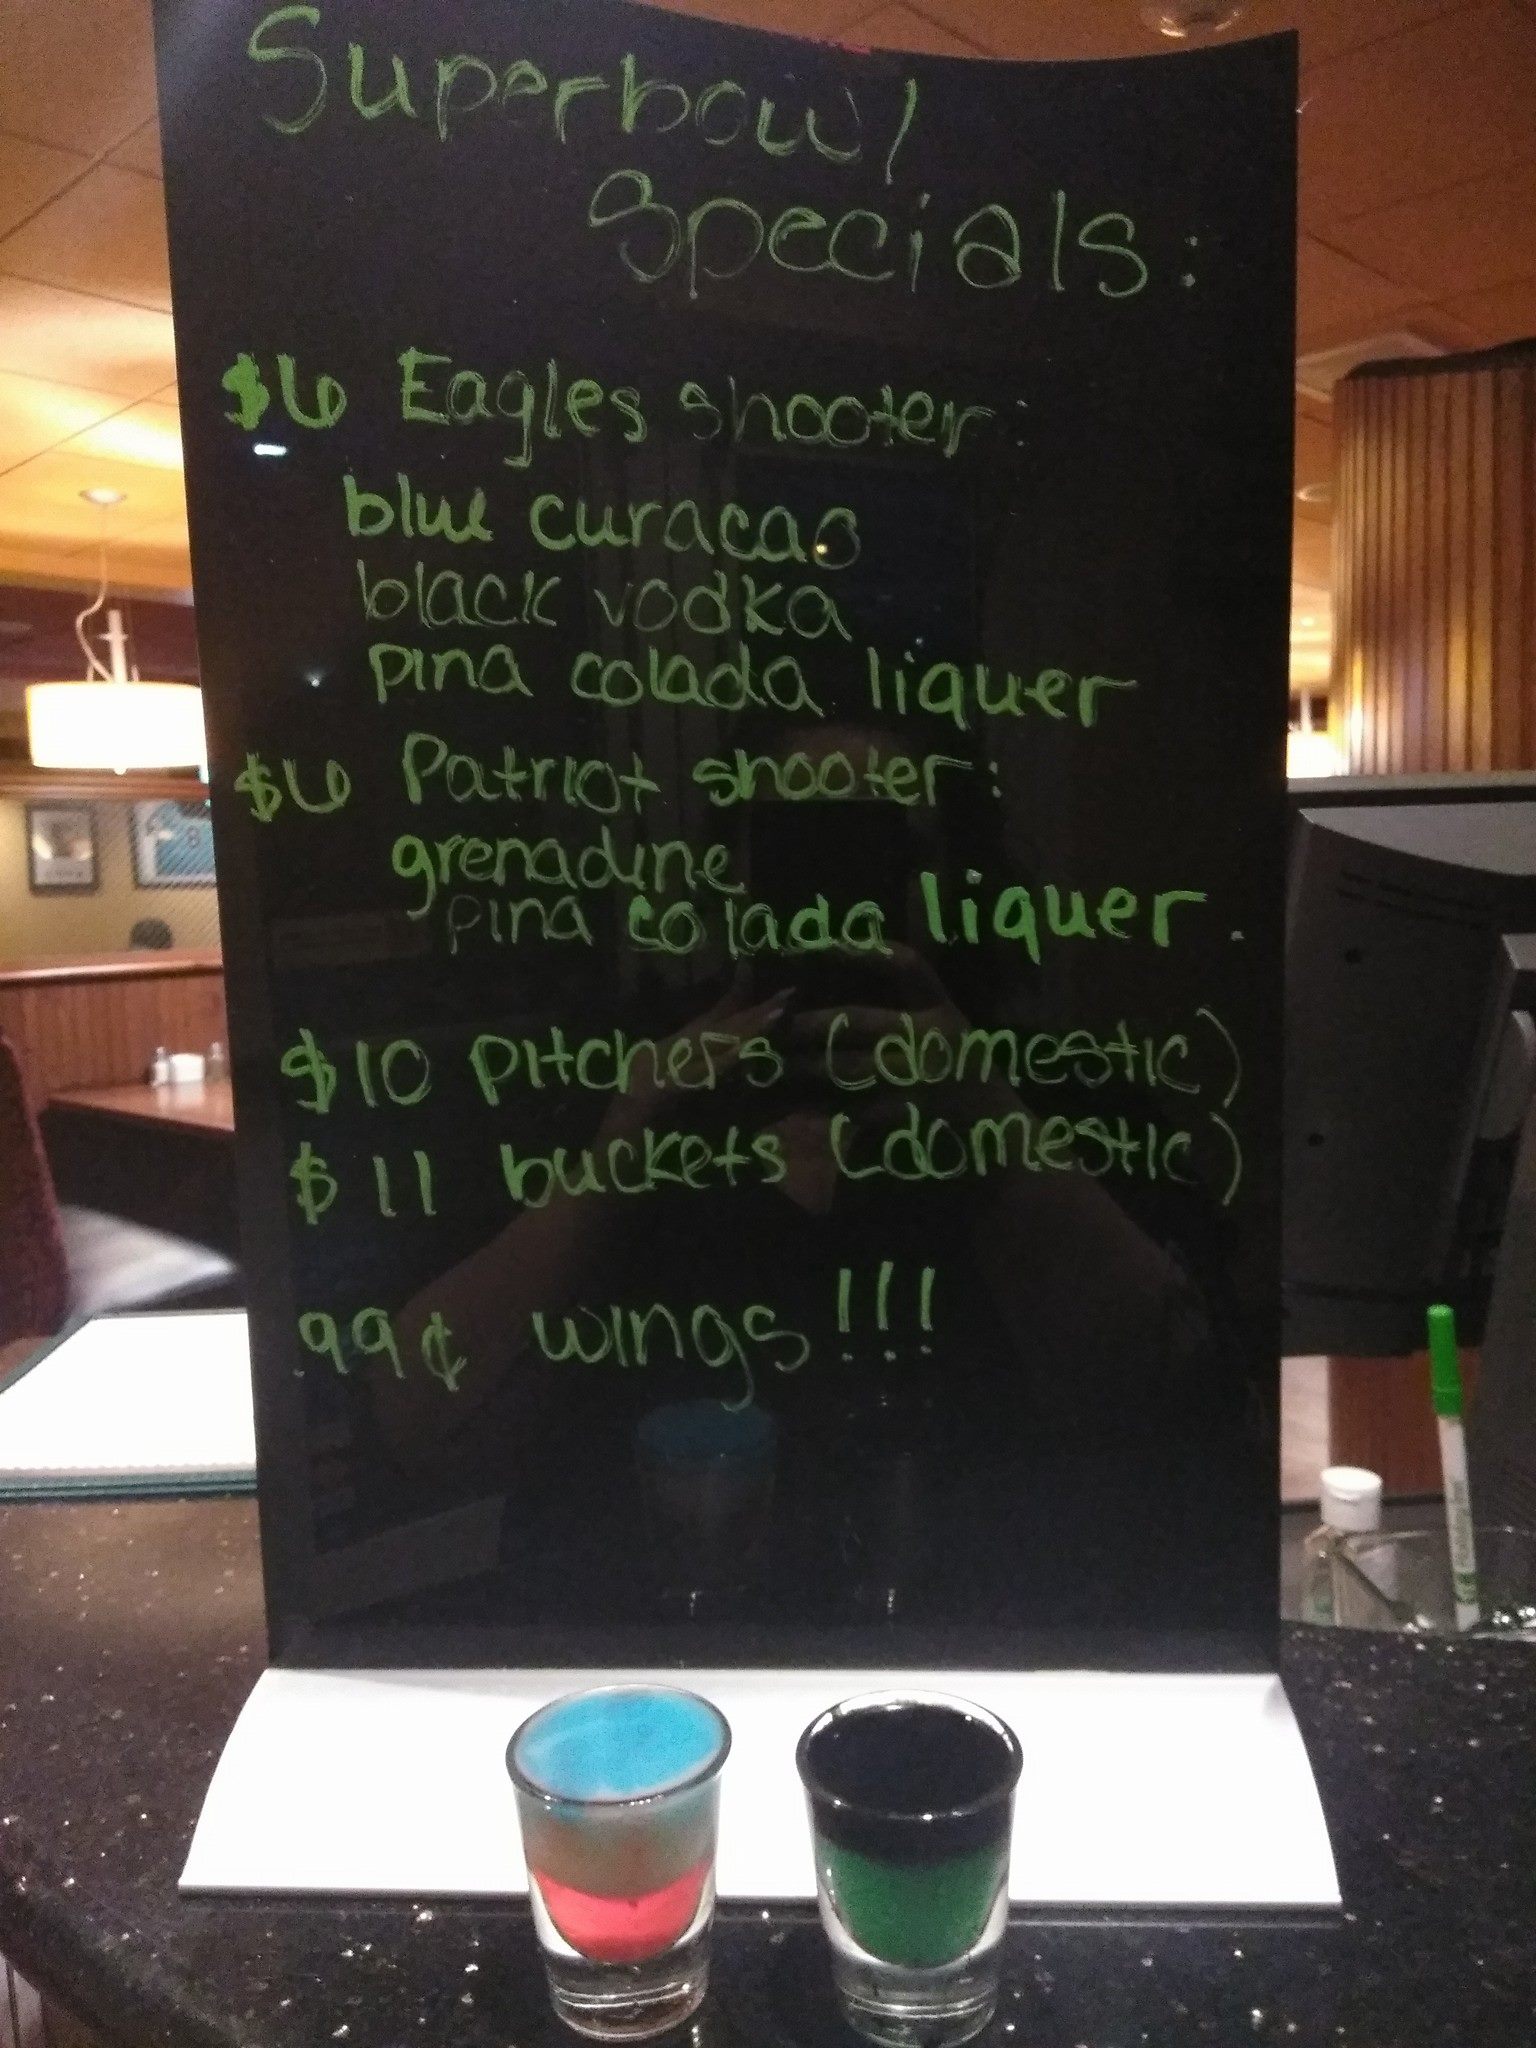 Superbowl
Specials:
$6 Eagles shooter:
blue curacao
black vodka
pina colada liquer
$6 Patriot shooter:
grenadine
pina colada liquer.
$10 pitchers (domestic)
$11 buckets (domestic)
.99¢ wings!!!
8